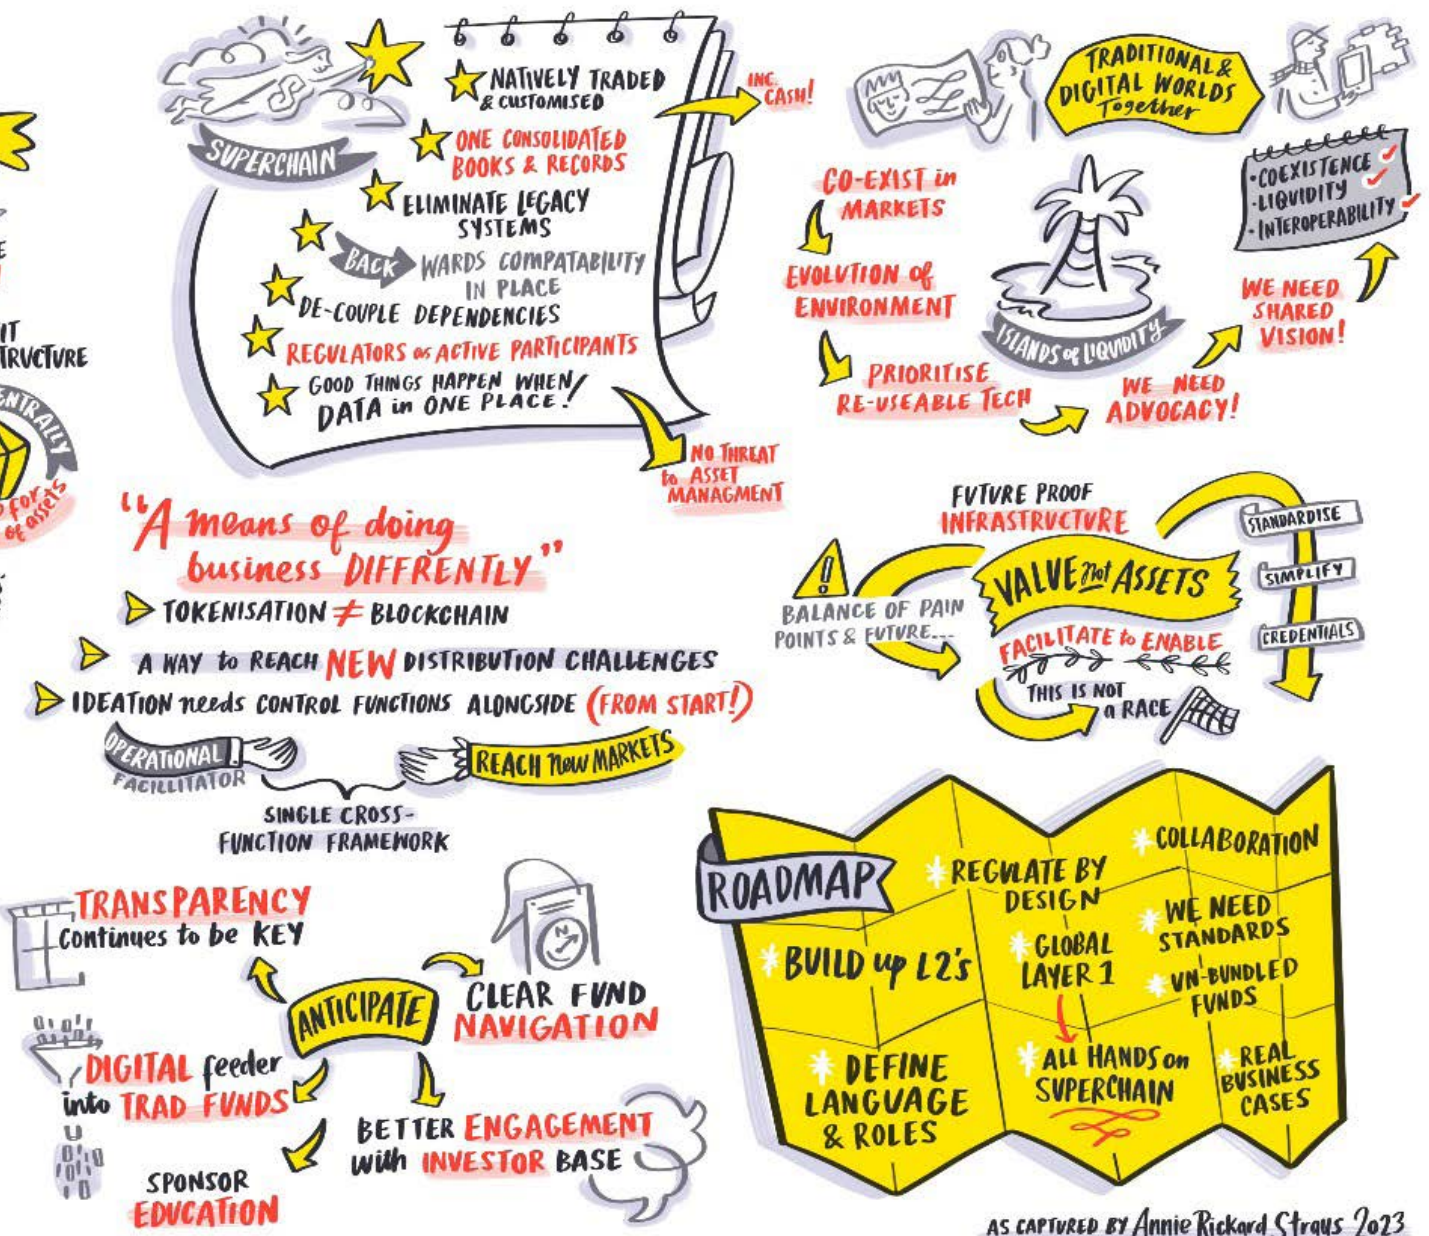 SUPERCHAIN
NATIVELY TRADED
& CUSTOMISED
INC.
CASH!
ONE CONSOLIDATED
BOOKS & RECORDS
ELIMINATE LEGACY
SYSTEMS
BACK WARDS COMPATABILITY
IN PLACE
DE-COUPLE DEPENDENCIES
REGULATORS as ACTIVE PARTICIPANTS
GOOD THINGS HAPPEN WHEN
DATA in ONE PLACE!
NO THREAT
to ASSET
MANAGMENT
TRADITIONAL &
DIGITAL WORLDS
Together
CO-EXIST in
MARKETS
EVOLUTION of
ENVIRONMENT
PRIORITISE
RE-USEABLE TECH
ISLANDS of LIQUIDITY
WE NEED
ADVOCACY!
WE NEED
SHARED
VISION!
• COEXISTENCE
• LIQUIDITY
• INTEROPERABILITY
IT
TRUCTURE
ENTRALLY
FOR
of assets
"A means of doing
business DIFFRENTLY"
TOKENISATION ≠ BLOCKCHAIN
A WAY to REACH NEW DISTRIBUTION CHALLENGES
IDEATION needs CONTROL FUNCTIONS ALONGSIDE (FROM START!)
OPERATIONAL
FACILLITATOR
REACH new MARKETS
SINGLE CROSS-
FUNCTION FRAMEWORK
FUTURE PROOF
INFRASTRUCTURE
VALUE not ASSETS
FACILITATE to ENABLE
THIS IS NOT
a RACE
BALANCE OF PAIN
POINTS & FUTURE...
STANDARDISE
SIMPLIFY
CREDENTIALS
TRANSPARENCY
Continues to be KEY
ANTICIPATE
N
CLEAR FUND
NAVIGATION
DIGITAL feeder
into TRAD FUNDS
BETTER ENGAGEMENT
with INVESTOR BASE
SPONSOR
EDUCATION
ROADMAP
BUILD up L2's
DEFINE
LANGUAGE
& ROLES
REGULATE BY
DESIGN
GLOBAL
LAYER 1
ALL HANDS on
SUPERCHAIN
COLLABORATION
WE NEED
STANDARDS
UN-BUNDLED
FUNDS
REAL
BUSINESS
CASES
AS CAPTURED BY Annie Rickard Straus 2023